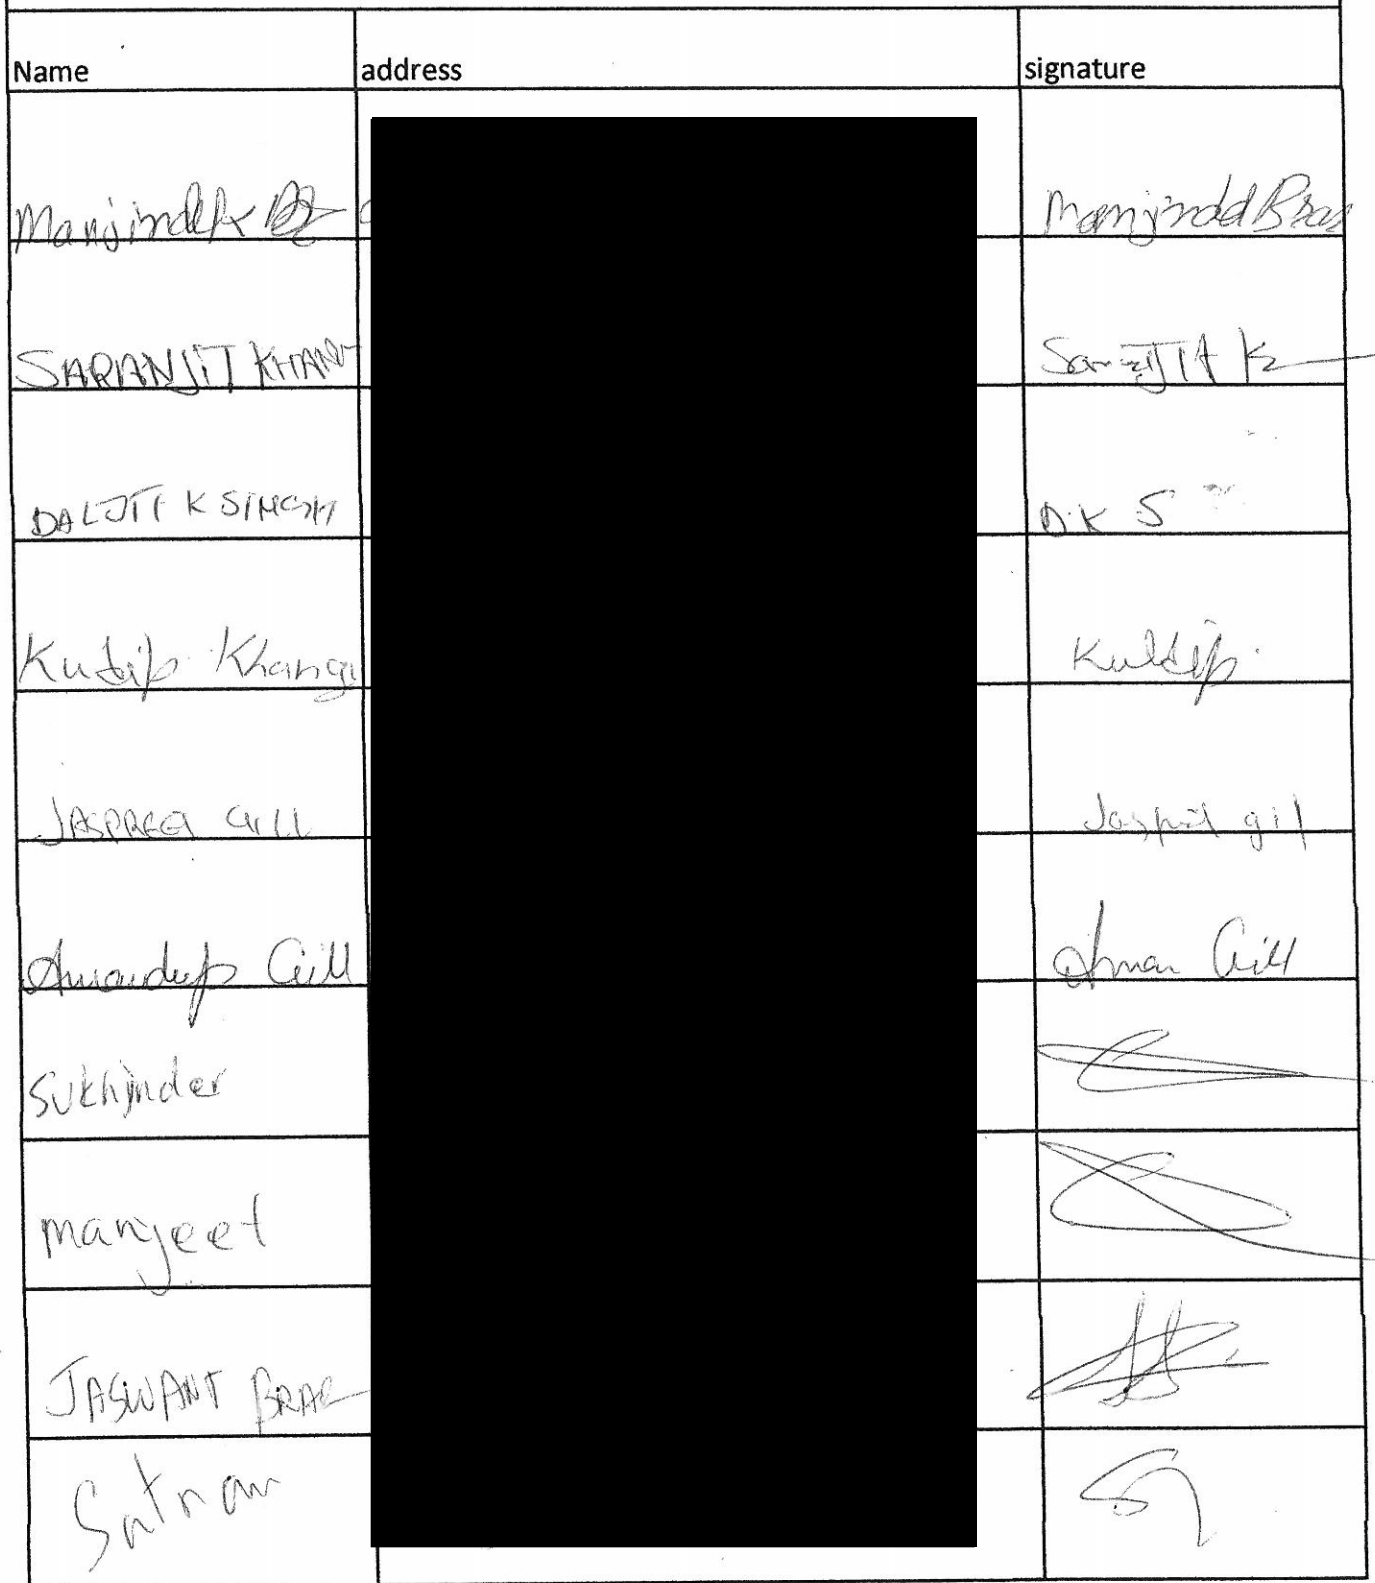 Name address signature
Manjinder Manjindd Brar
SARANJIT KHAN Saranjit K
DALJIT K SINGH D.K S
Kudip Khangu Kuldip
JASPREET GILL Jaspret gil
Amandeep Gill Aman Gill
Sukhjinder
manjeet
JASWANT BRAR
Satnam